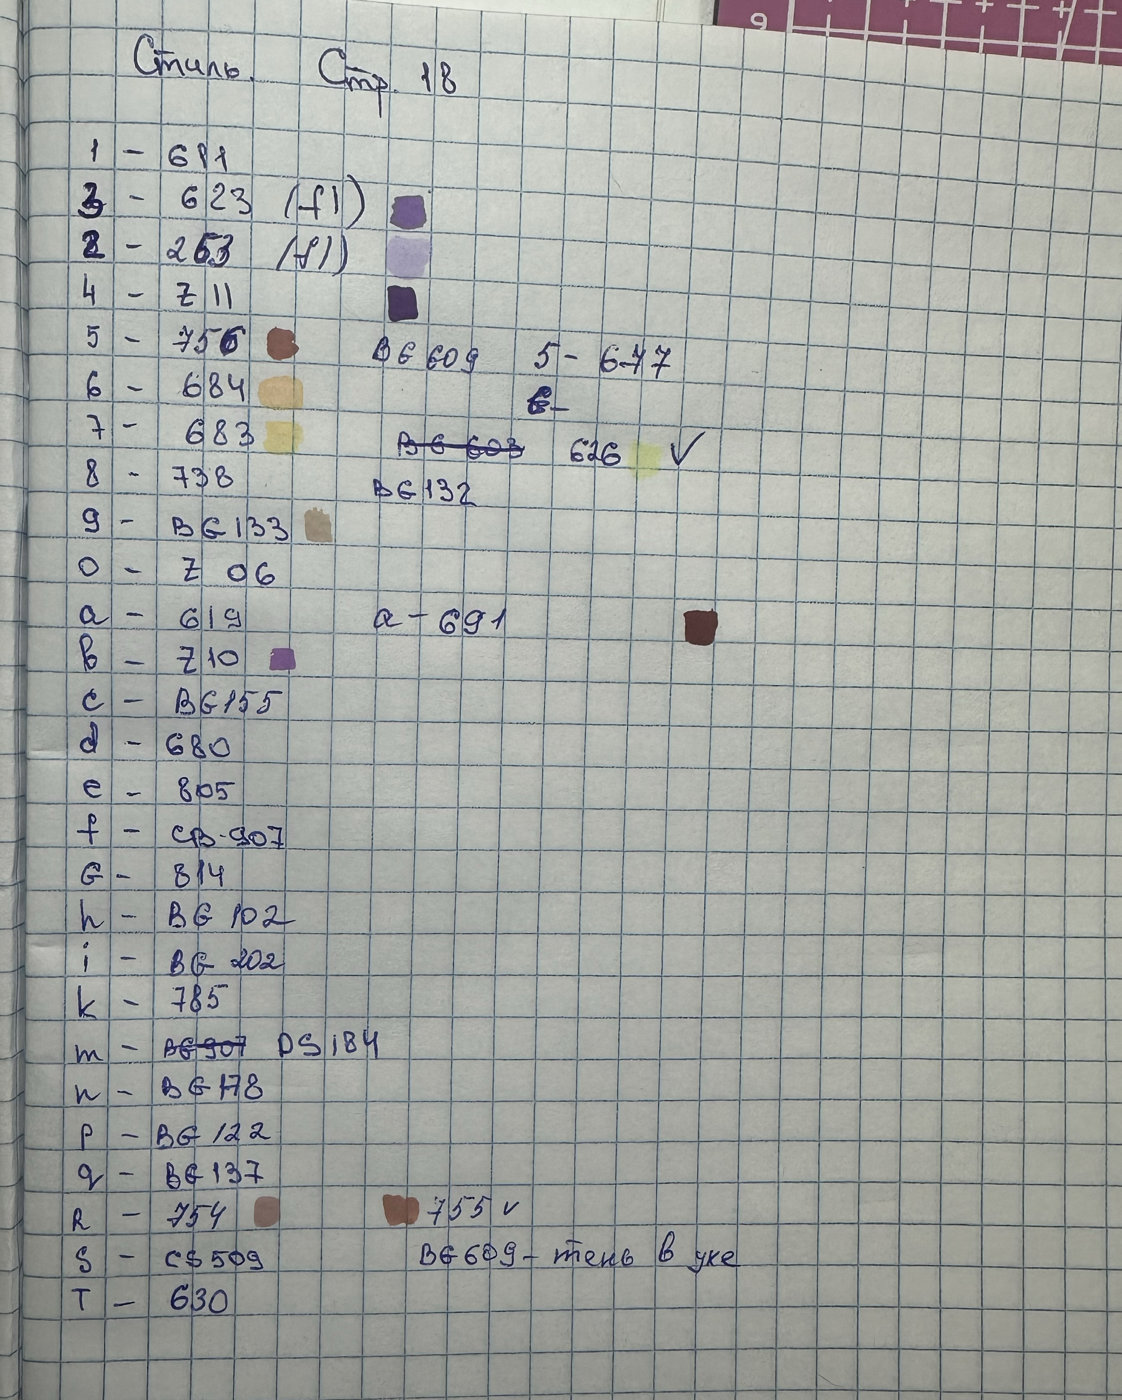 Стиль. Стр. 18
1 - 611
3 - 623 (fl)
2 - 263 (fl)
4 - Z 11
5 - 756 BG 609 5 - 677
6 - 684 6-
7 - 683 BG 603 626 ✓
8 - 738 BG 132
9 - BG 133
0 - Z 06
a - 619 a - 691
b - Z10
c - BG 155
d - 680
e - 805
f - 907
G - 814
h - BG 102
i - BG 202
k - 785
m - BG 907 DS 184
n - BG 178
p - BG 122
q - BG 137
R - 754 755 v
S - CS 509 BG 609 - тень в ухе
T - 630
9